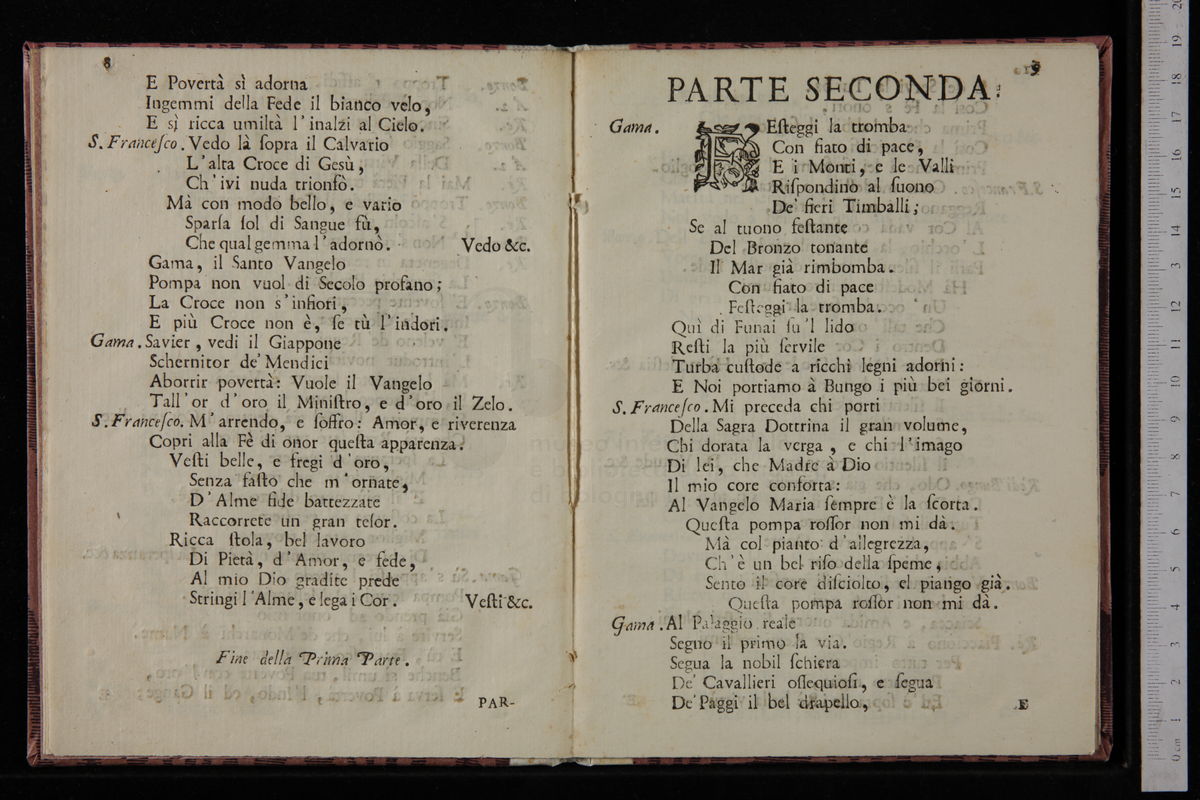 8
E Povertà sì adorna
Ingemmi della Fede il bianco velo,
E sì ricca umiltà l'inalzi al Cielo.
S. Franceſco. Vedo là ſopra il Calvario
L'alta Croce di Gesù,
Ch'ivi nuda trionfò.
Mà con modo bello, e vario
Sparſa ſol di Sangue fù,
Che qual gemma l'adornò. Vedo &c.
Gama, il Santo Vangelo
Pompa non vuol di Secolo profano;
La Croce non s'infiori,
E più Croce non è, ſe tù l'indori.
Gama. Savier, vedi il Giappone
Schernitor de' Mendici
Aborrir povertà: Vuole il Vangelo
Tall'or d'oro il Miniſtro, e d'oro il Zelo.
S. Franceſco. M'arrendo, e ſoffro: Amor, e riverenza
Copri alla Fè di onor queſta apparenza.
Veſti belle, e fregi d'oro,
Senza faſto che m'ornate,
D'Alme fide battezzate
Raccorrete un gran teſor.
Ricca ſtola, bel lavoro
Di Pietà, d'Amor, e fede,
Al mio Dio gradite prede
Stringi l'Alme, e lega i Cor. Veſti &c.
Fine della Prima Parte.
PAR-
9
PARTE SECONDA.
Gama. FEſteggi la tromba
Con fiato di pace,
E i Monti, e le Valli
Riſpondino al ſuono
De' fieri Timballi;
Se al tuono feſtante
Del Bronzo tonante
Il Mar già rimbomba.
Con fiato di pace
Feſteggi la tromba.
Quì di Funai ſu'l lido
Reſti la più ſervile
Turba cuſtode a ricchi legni adorni:
E Noi portiamo à Bungo i più bei giorni.
S. Franceſco. Mi preceda chi porti
Della Sagra Dottrina il gran volume,
Chi dorata la verga, e chi l'imago
Di lei, che Madre à Dio
Il mio core conforta:
Al Vangelo Maria ſempre è la ſcorta.
Queſta pompa roſſor non mi dà.
Mà col pianto d'allegrezza,
Ch'è un bel riſo della ſpeme,
Sento il core diſciolto, el piango già.
Queſta pompa roſſor non mi dà.
Gama. Al Palaggio reale
Segno il primo la via.
Segua la nobil ſchiera
De' Cavallieri oſſequioſi, e ſegua
De' Paggi il bel drapello,
E